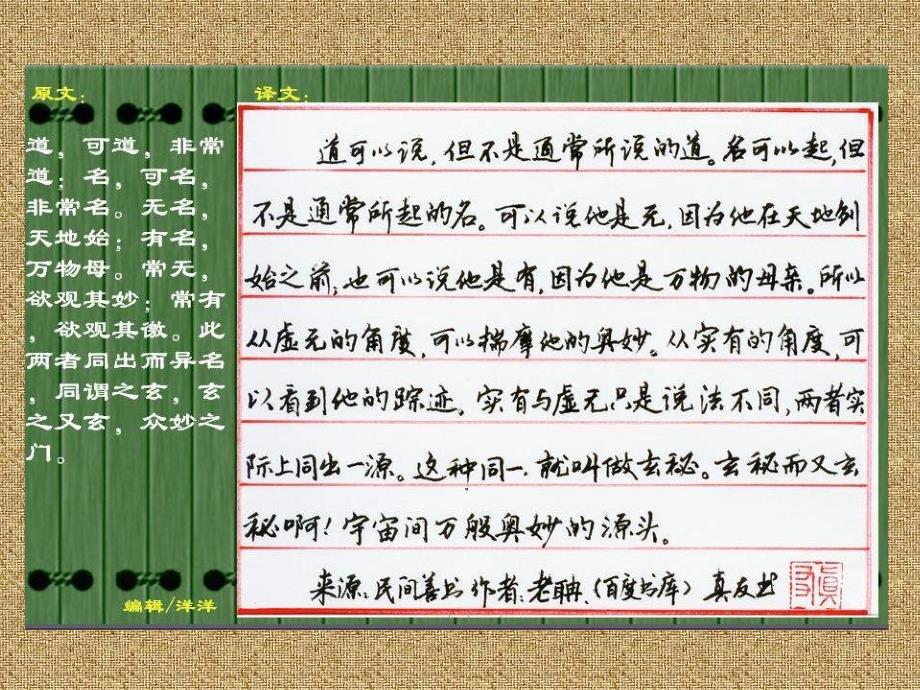 原文：
道，可道，非常
道；名，可名，
非常名。无名，
天地始；有名，
万物母。常无，
欲观其妙；常有
，欲观其徼。此
两者同出而异名
，同谓之玄，玄
之又玄，众妙之
门。
译文：
道可以说，但不是通常所说的道。名可以起，但
不是通常所起的名。可以说他是无，因为他在天地创
始之前；也可以说他是有，因为他是万物的母亲。所以
从虚无的角度，可以揣摩他的奥妙。从实有的角度，可
以看到他的踪迹。实有与虚无只是说法不同，两者实
际上同出一源。这种同一，就叫做玄秘。玄秘而又玄
秘啊！宇宙间万般奥妙的源头。
来源：民间善书 作者：老聃（百度书库）真友书
编辑/洋洋